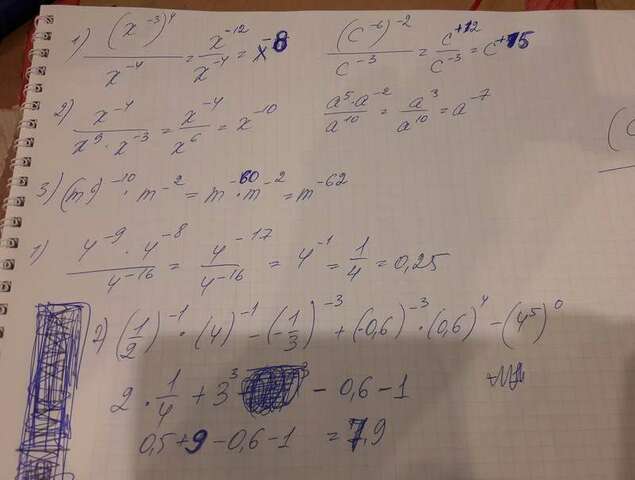 1) (x⁻³)⁴/x⁻⁴ = x⁻¹²/x⁻⁴ = x⁻⁸ (c⁻⁶)⁻²/c⁻³ = c⁺¹²/c⁻³ = c⁺¹⁵
2) x⁻⁴/(x⁹ · x⁻³) = x⁻⁴/x⁶ = x⁻¹⁰ (a⁵ · a⁻²)/a¹⁰ = a³/a¹⁰ = a⁻⁷
3) (m9)⁻¹⁰ · m⁻² = m⁻⁶⁰ · m⁻² = m⁻⁶²
1) (4⁻⁹ · 4⁻⁸)/4⁻¹⁶ = 4⁻¹⁷/4⁻¹⁶ = 4⁻¹ = 1/4 = 0,25
2) (1/2)⁻¹ · (4)⁻¹ - (-1/3)⁻³ + (-0,6)⁻³ · (0,6)⁴ - (4⁵)⁰
2 · 1/4 + 3³ - 0,6 - 1
0,5 + 9 - 0,6 - 1 = 7,9